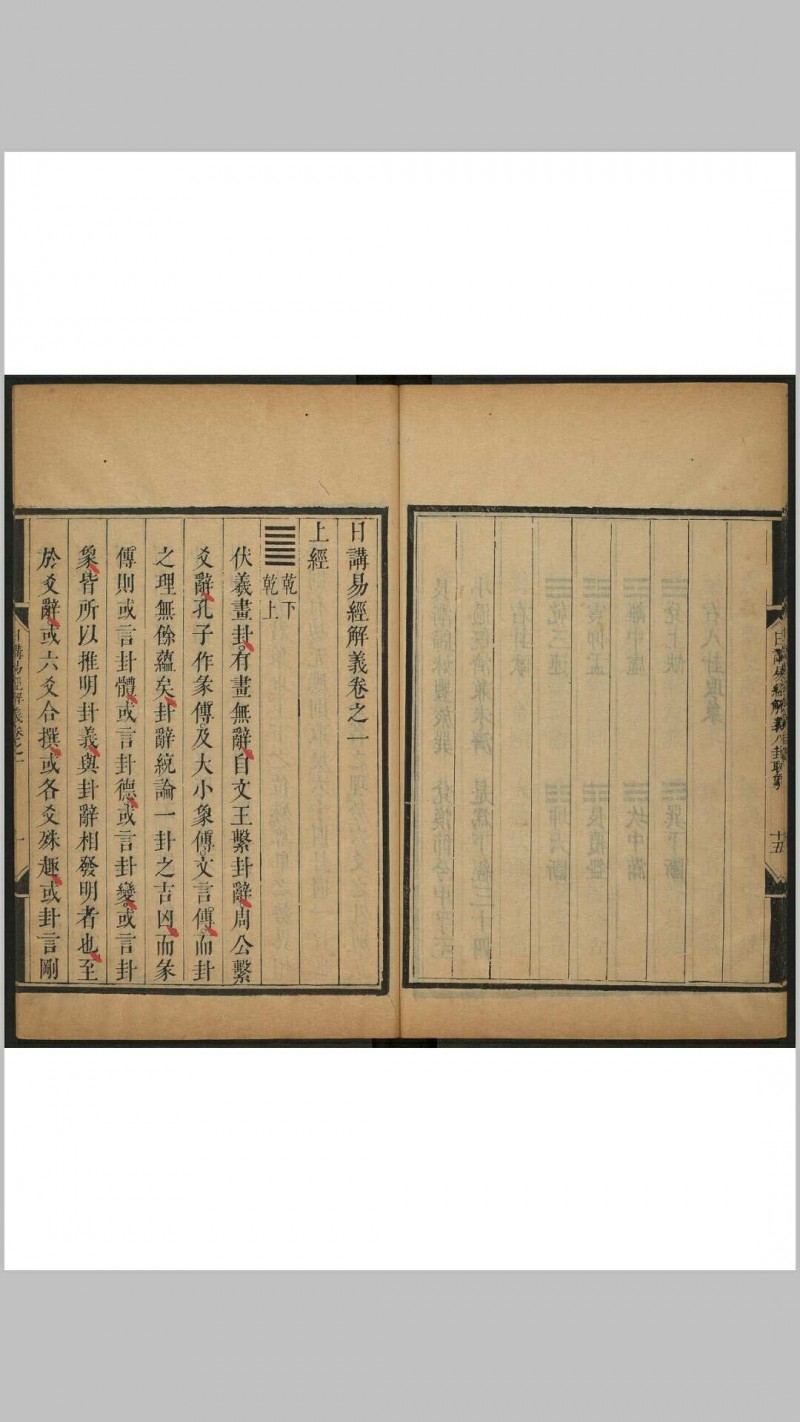 日講易經解義卷之一
上經
乾下
乾上
伏羲畫卦有畫無辭自文王繫卦辭周公繫
爻辭孔子作彖傳及大小象傳文言傳而卦
之理無餘蘊矣卦辭統論一卦之吉凶而彖
傳則或言卦體或言卦德或言卦變或言卦
象皆所以推明卦義與卦辭相發明者也至
於爻辭或六爻合撰或各爻殊趣或卦言剛
日講易經解義卷之一
一